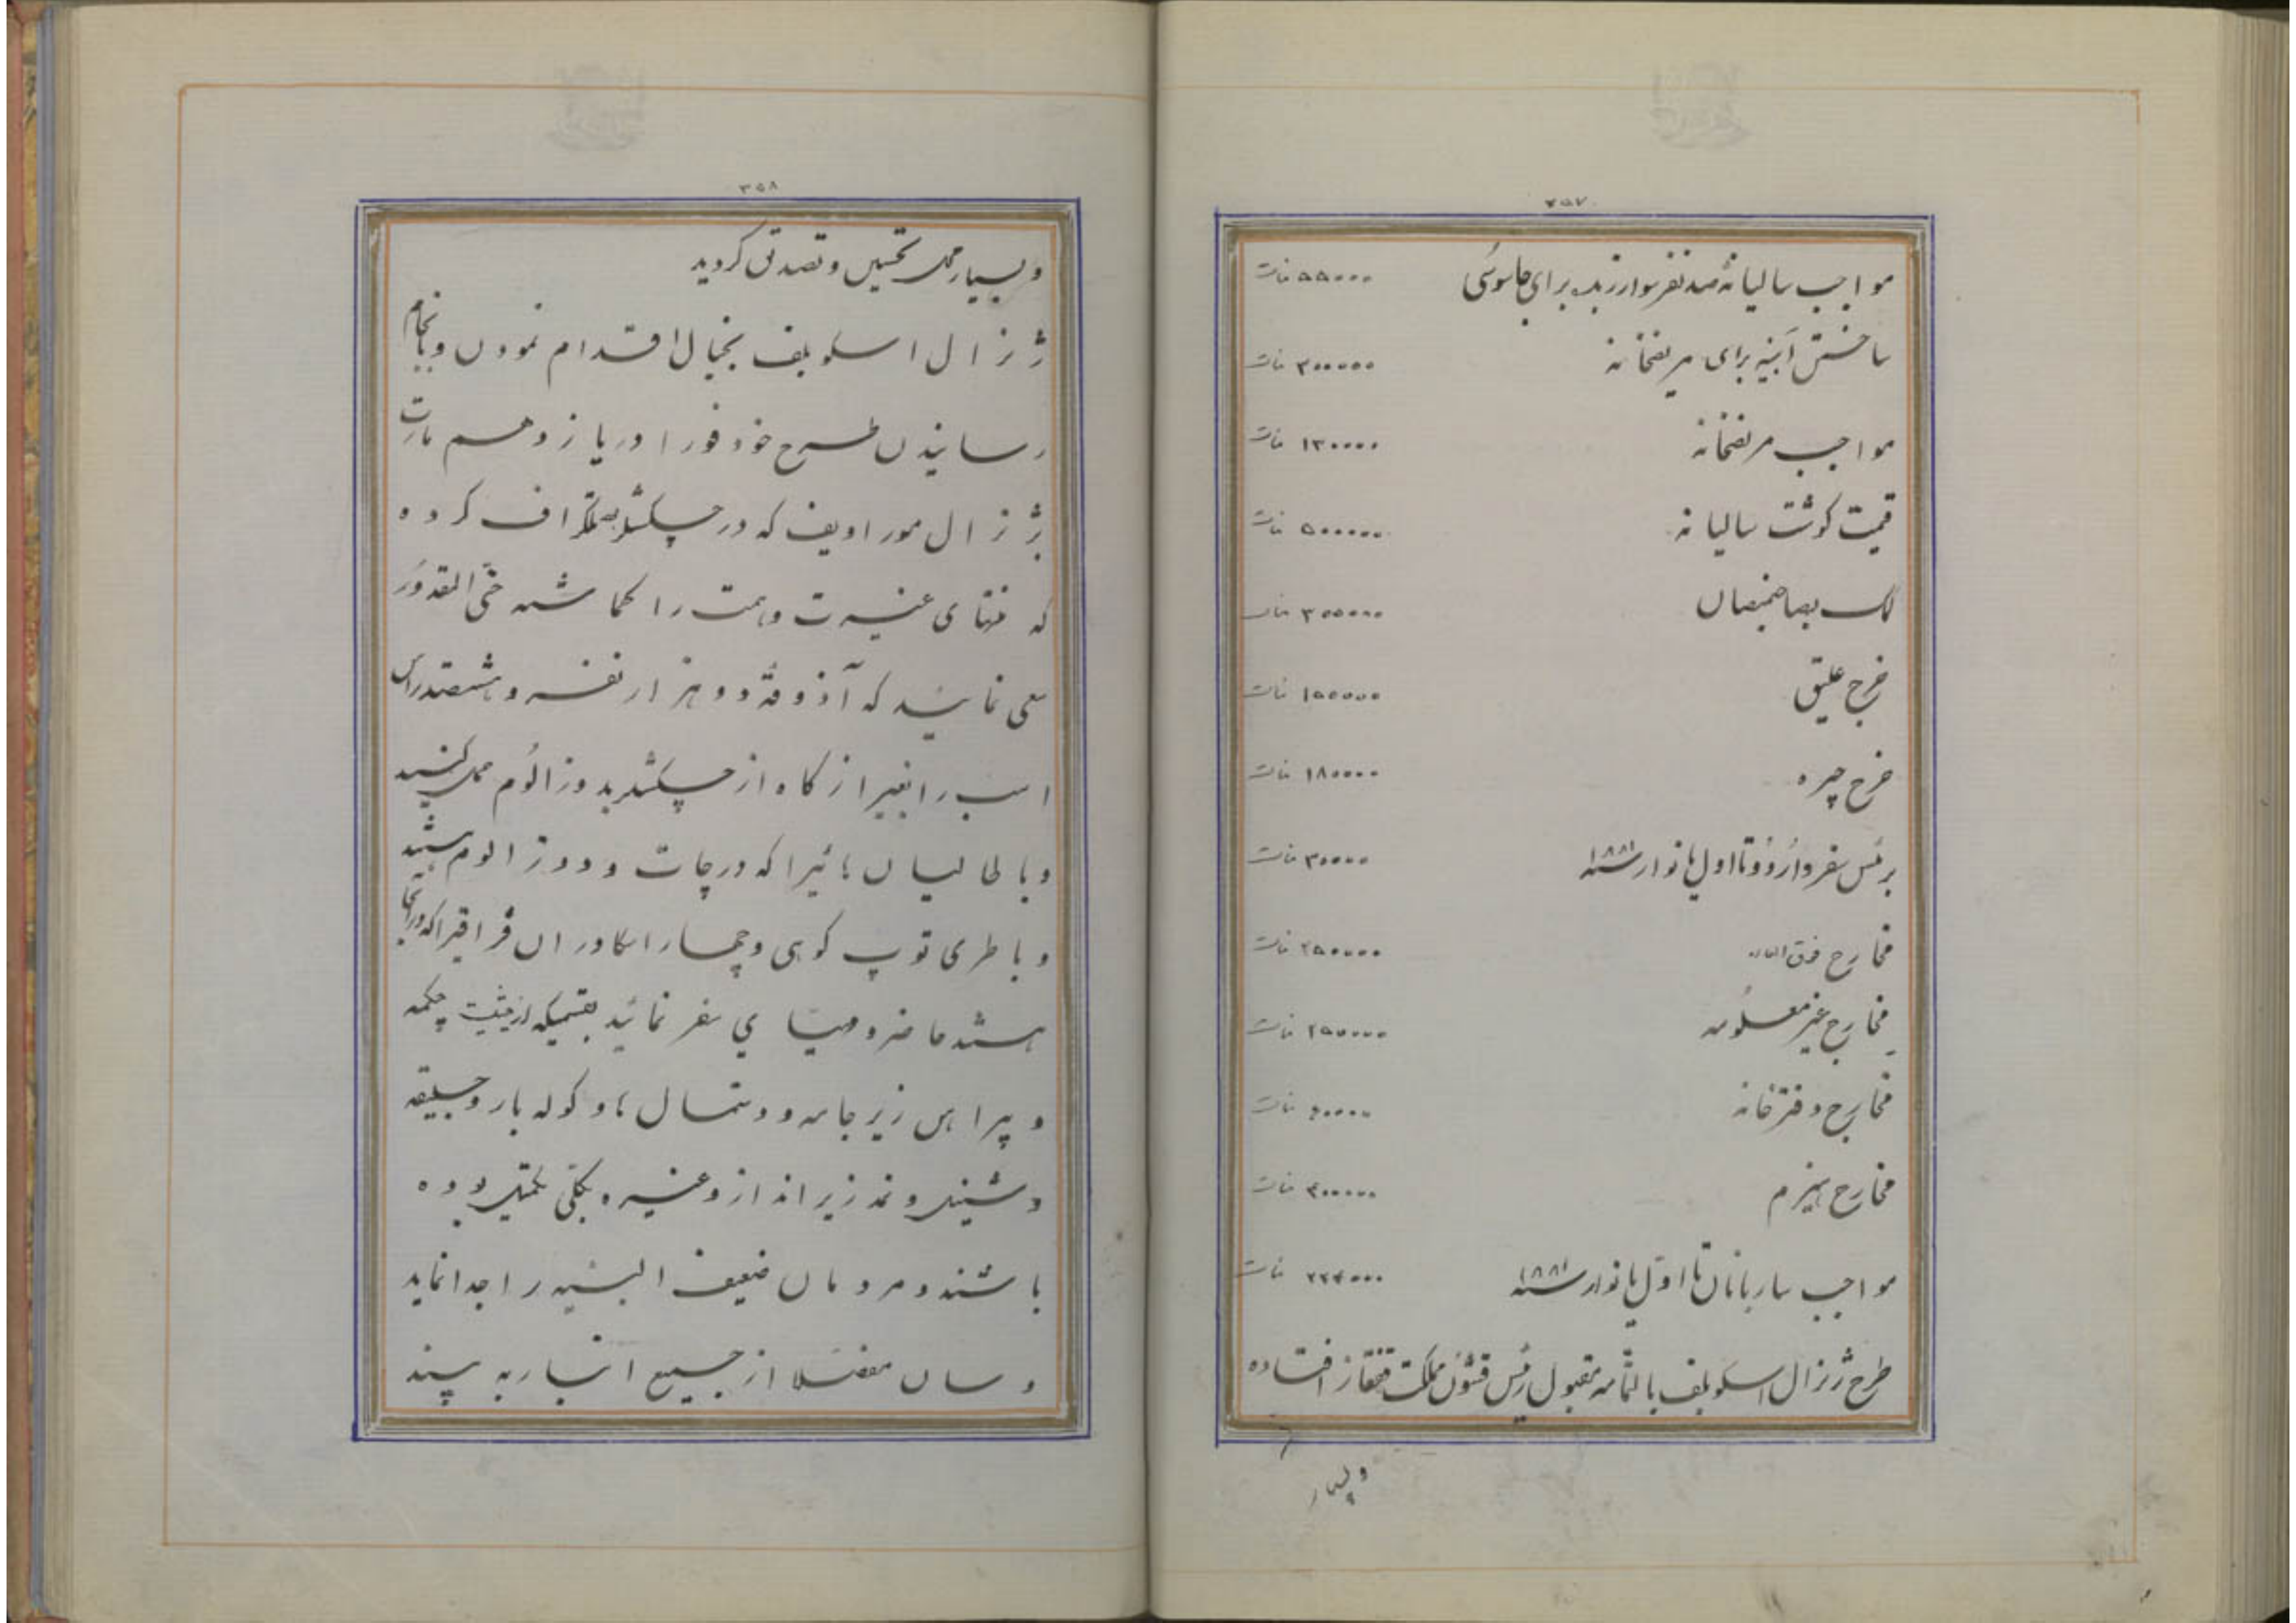 ۳۵۷
مواجب سالیانهٔ صد نفر سوار زبده برای جاسوسی ۵۵۰۰۰ منات
ساختن آبنیه برای مریضخانه ۳۰۰۰۰۰ منات
مواجب مریضخانه ۱۳۰۰۰۰ منات
قیمت کوشت سالیانه ۵۰۰۰۰۰ منات
کمک بصاحبمنصبان ۳۰۰۰۰۰ منات
خرج علیق ۱۵۰۰۰۰ منات
خرج جیره ۱۸۰۰۰۰ منات
برئس سفر و اُردُو تا اول یانوار سنه ۱۸۸۱ ۳۰۰۰۰ منات
مخارج فوق العاده ۲۵۰۰۰۰ منات
مخارج غیر معلومه ۲۵۰۰۰۰ منات
مخارج دفترخانه منات
مخارج هیزم منات
مواجب ساربانان تا اول یانوار سنه ۱۸۸۱ منات
طرح ژنرال اسکوبلف بالتمامه مقبول رئیس قشون مملکت قفقاز افتاده
و بسیار
۳۵۸
و بسیار محل تحسین و تصدیق کردید
ژنرال اسکوبلف بخیال اقدام نمودن و بانجام
رسانیدن طرح خود فورا در یازدهم مارت
بژنرال موراویف که در چکشلر بتلگراف کرده
که منتهای غیرت و همت را کماشته حتی المقدور
سعی نمائید که آذوقهٔ دو هزار نفر و هشتصد راس
اسب را بغیر از کاه از چکشلر بدوزالوم حمل کنید
و باطالیان هائیرا که در چات و دوزالوم هستند
و باطری توپ کوهی و چهار اسکادران قزاقیرا که در آنجا
هستند حاضر و مهیای سفر نمائید بقسمیکه از حیثیت چکمه
و پیراهن زیرجامه و دستمال ها و کوله بار و جلیقه
و شینل و نمد زیرانداز و غیره بکلی مکمل بوده
باشند و مردمان ضعیف البنیه را جدا نماید
و سان مفصلا از جمیع انبار به بیند